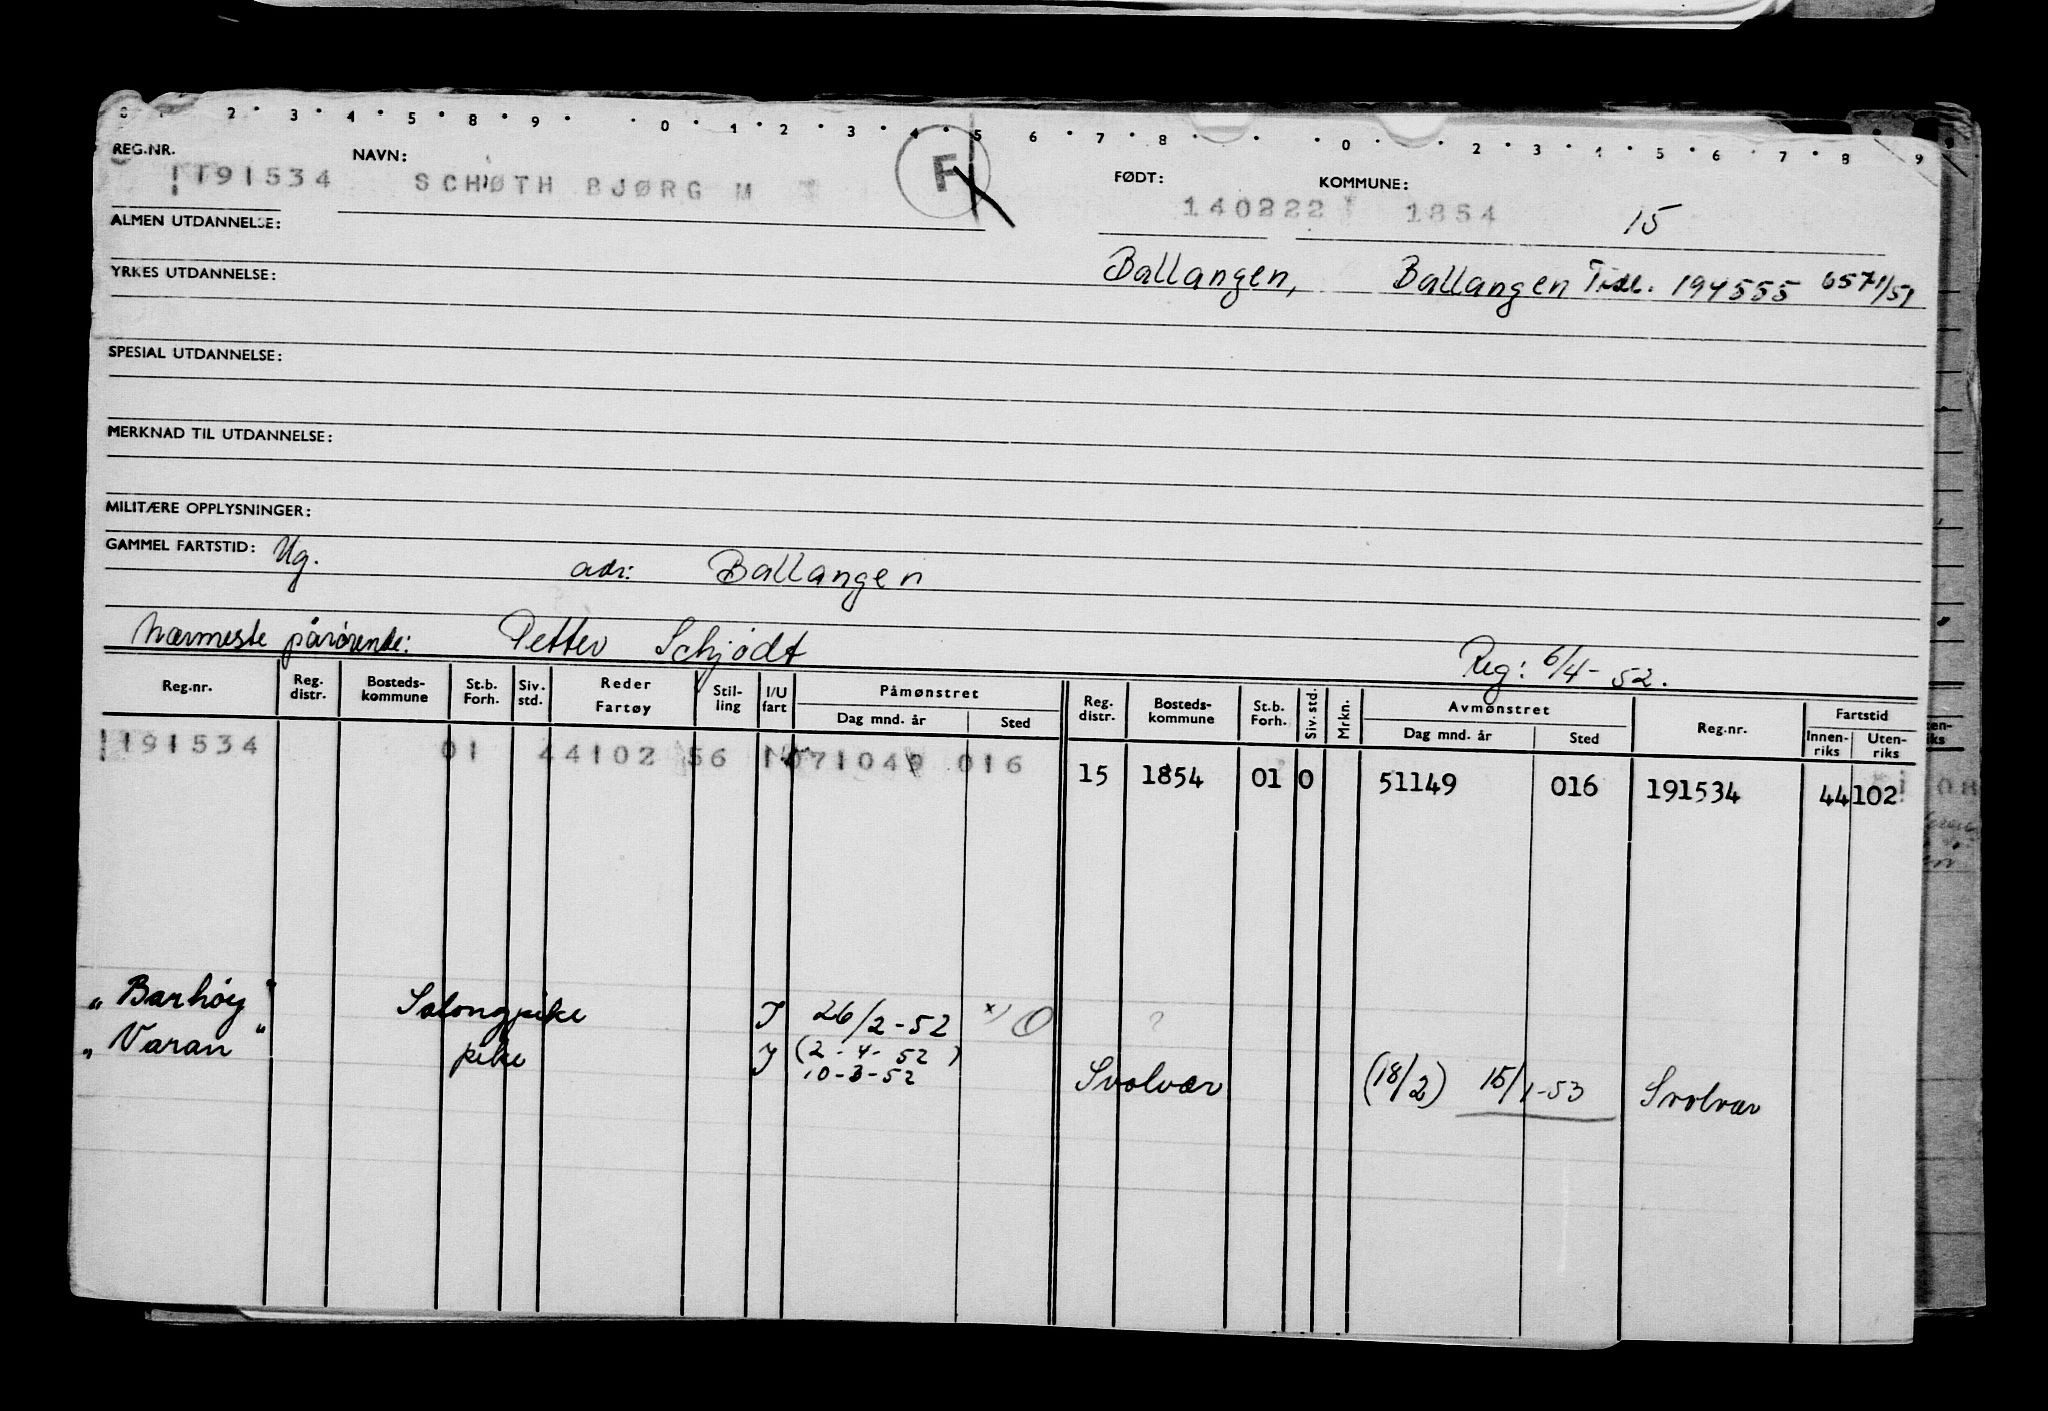 REG.NR. NAVN: FØDT: KOMMUNE:
191534 SCHØTH BJØRG M F 140222 1854 15
ALMEN UTDANNELSE:
YRKES UTDANNELSE: Ballangen, Ballangen Tidl. 194555 6571/51
SPESIAL UTDANNELSE:
MERKNAD TIL UTDANNELSE:
MILITÆRE OPPLYSNINGER:
GAMMEL FARTSTID: Ug. adr: Ballangen
Nærmeste pårørende: Petter Schjødt Reg: 6/4-52.
Reg.nr. Reg. distr. Bosteds-kommune St.b. Forh. Siv. std. Reder Fartøy Stil-ling I/U fart Påmønstret Reg. distr. Bosteds-kommune St.b. Forh. Siv. std. Mrkn. Avmønstret Reg.nr. Fartstid
Dag mnd. år Sted Dag mnd. år Sted Innen-riks Uten-riks
191534 01 44102 56 1071049 016 15 1854 01 0 51149 016 191534 44102
"Barhøy" Salongpike I 26/2-52 x) O ?
"Varan" pike I (2-4-52)
10-3-52 Svolvær (18/2) 15/1-53 Svolvær